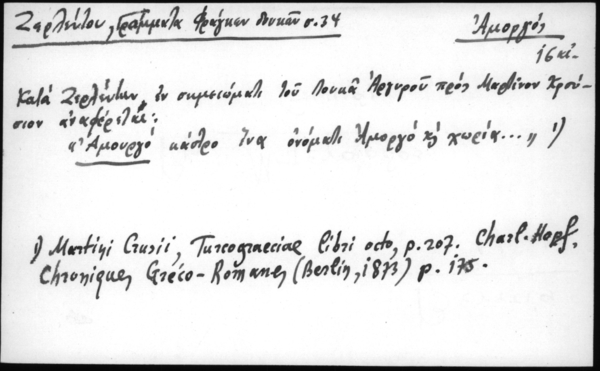 Ζερλέντου, Γράμματα Φράγκων δουκῶν σ.34
Ἀμοργός
16 αἰ.
Κατά Ζερλέντην, ἐν σημειώματι τοῦ Λουκᾶ Ἀργυροῦ πρός Μαρτῖνον Κρού-
σιον ἀναφέρεται:
"Ἀμουργό κάστρο ἕνα ὀνόματι Ἀμοργό κ' χωρία... „ 1)
1) Martini Crusii, Turcograeciae libri octo, p.207. Charl. Hopf,
Chroniques Gréco-Romanes (Berlin, 1873) p. 175.